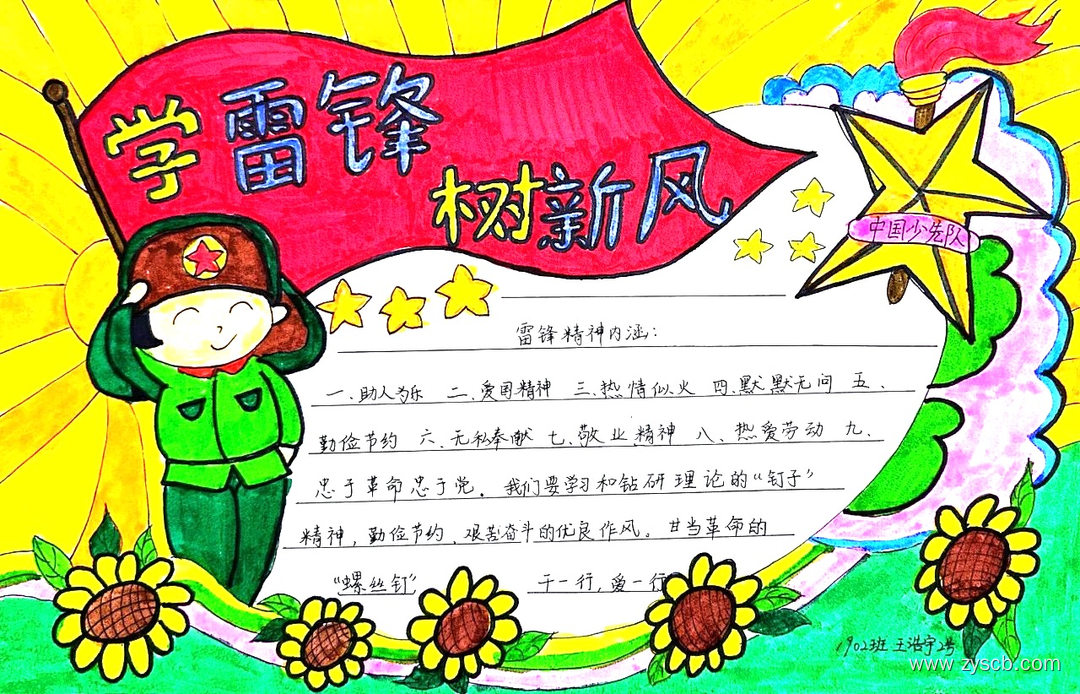 学雷锋
树新风
中国少先队
雷锋精神内涵:
一、助人为乐 二、爱国精神 三、热情似火 四、默默无问 五、
勤俭节约 六、无私奉献 七、敬业精神 八、热爱劳动 九、
忠于革命忠于党。我们要学习和钻研理论的“钉子”
精神,勤俭节约、艰苦奋斗的优良作风。甘当革命的
“螺丝钉” 干一行,爱一行
1902班 王浩宇2号
www.zyscb.com